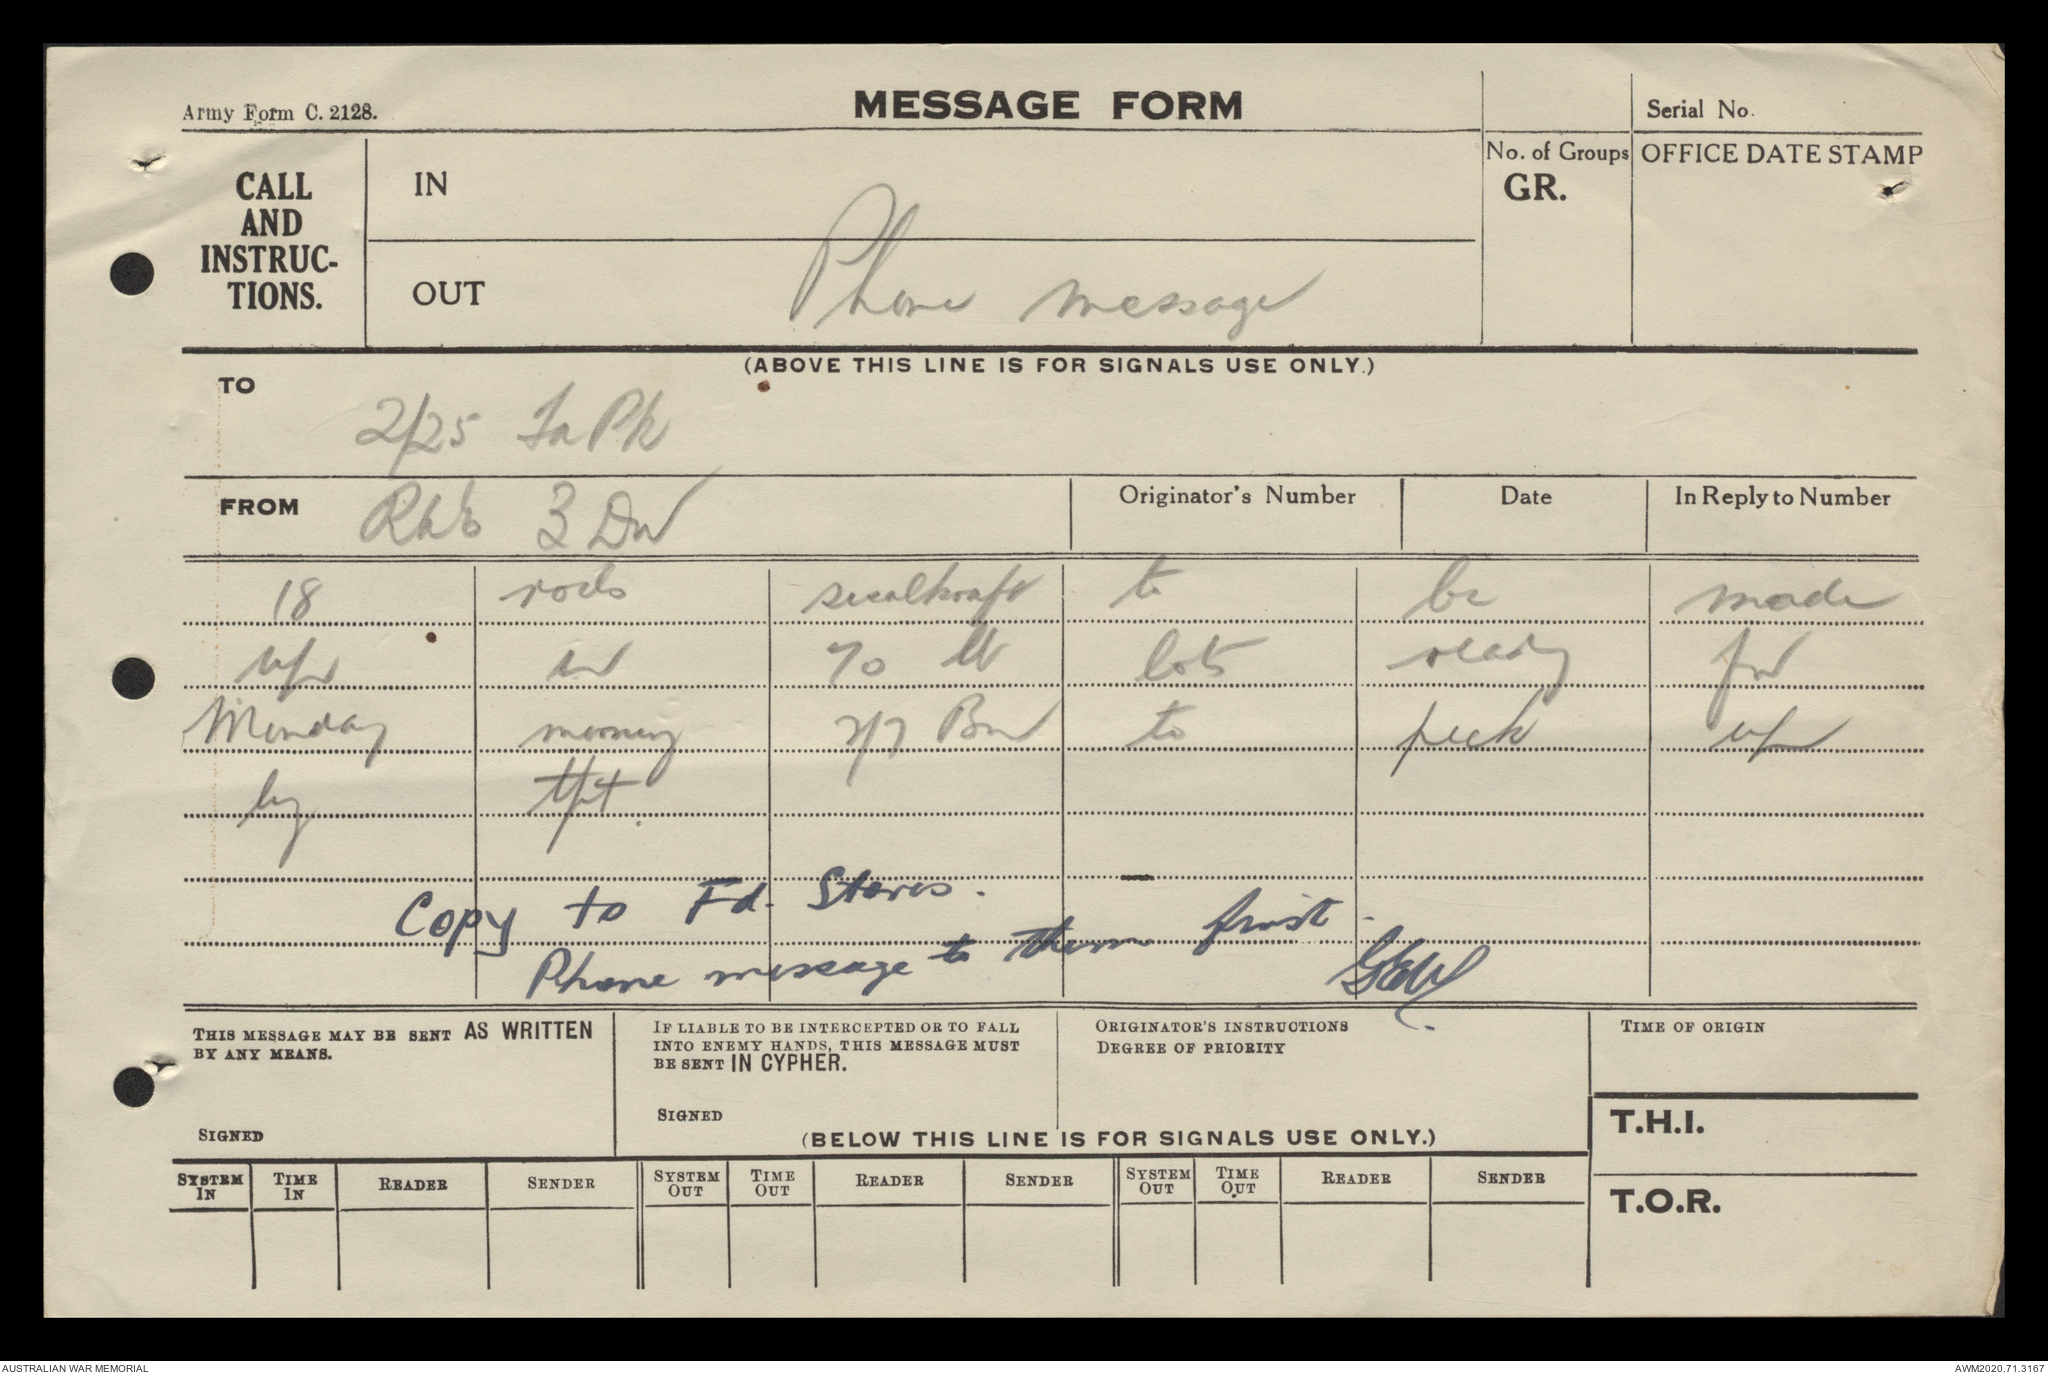 Army Form C. 2128.
MESSAGE FORM
Serial No.
CALL AND INSTRUC-TIONS.
IN
No. of Groups
GR.
OFFICE DATE STAMP
OUT
Phone message
(ABOVE THIS LINE IS FOR SIGNALS USE ONLY.)
TO
2/25 Fd Pk
FROM
3 Div
Originator's Number
Date
In Reply to Number
18 rods sisalkraft to be made
up in 70 lb lots ready for
Monday morning 2/7 Bn to pick up
by tpt.
Copy to Fd. Stores.
Phone message to them first.
THIS MESSAGE MAY BE SENT AS WRITTEN
BY ANY MEANS.
SIGNED
IF LIABLE TO BE INTERCEPTED OR TO FALL
INTO ENEMY HANDS, THIS MESSAGE MUST
BE SENT IN CYPHER.
SIGNED
ORIGINATOR'S INSTRUCTIONS
DEGREE OF PRIORITY
TIME OF ORIGIN
T.H.I.
(BELOW THIS LINE IS FOR SIGNALS USE ONLY.)
SYSTEM IN TIME IN READER SENDER SYSTEM OUT TIME OUT READER SENDER SYSTEM OUT TIME OUT READER SENDER
T.O.R.
AUSTRALIAN WAR MEMORIAL
AWM2020.71.3167